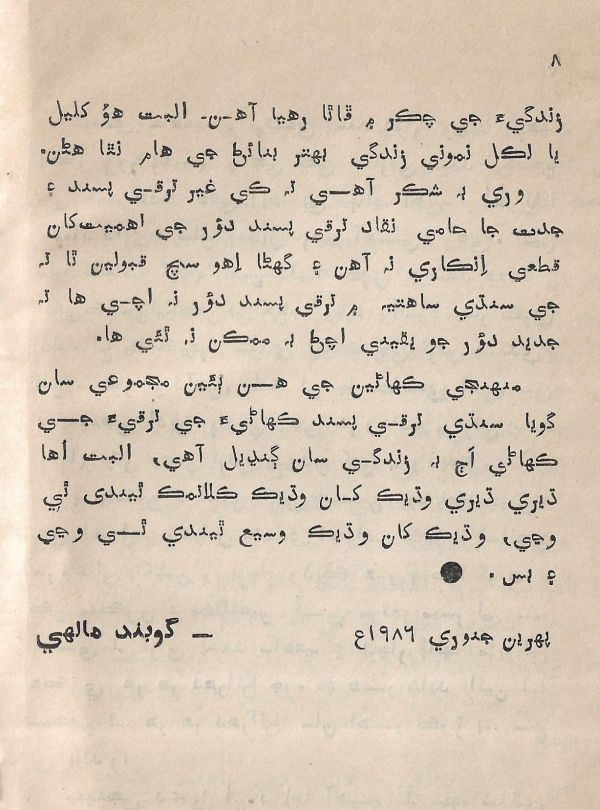 ۸
زندگيءَ جي چڪر ۾ ڦاٿا رهيا آهن۔ البت هوُ کليل
يا لڪل نموني زندگي بهتر بنائڻ جي هام نٿا هڻن.
وري بہ شڪر آهي تہ ڪي غير ترقي پسند ۽
جدت جا حامي نقاد ترقي پسند دؤر جي اهميت کان
قطعي اِنڪاري نہ آهن ۽ گهڻا اِهو سچ قبولين ٿا تہ
جي سنڌي ساهتيہ ۾ ترقي پسند دؤر نہ اچي ها تہ
جديد دؤر جو يقيني اچڻ بہ ممڪن نہ ٿئي ها.
منهنجي ڪهاڻين جي هن ٻئين مجموعي سان
گويا سنڌي ترقي پسند ڪهاڻيءَ جي ترقيءَ جي
ڪهاڻي اَڄ بہ زندگي سان ڳنڍيل آهي، البت اُها
ڌيري ڌيري وڌيڪ کان وڌيڪ ڪلاتمڪ ٿيندي ٿي
وڃي، وڌيڪ کان وڌيڪ وسيع ٿيندي ٿي وڃي
۽ بس.
پهرين جنوري ۱۹۸۶ع – گوبند مالهي